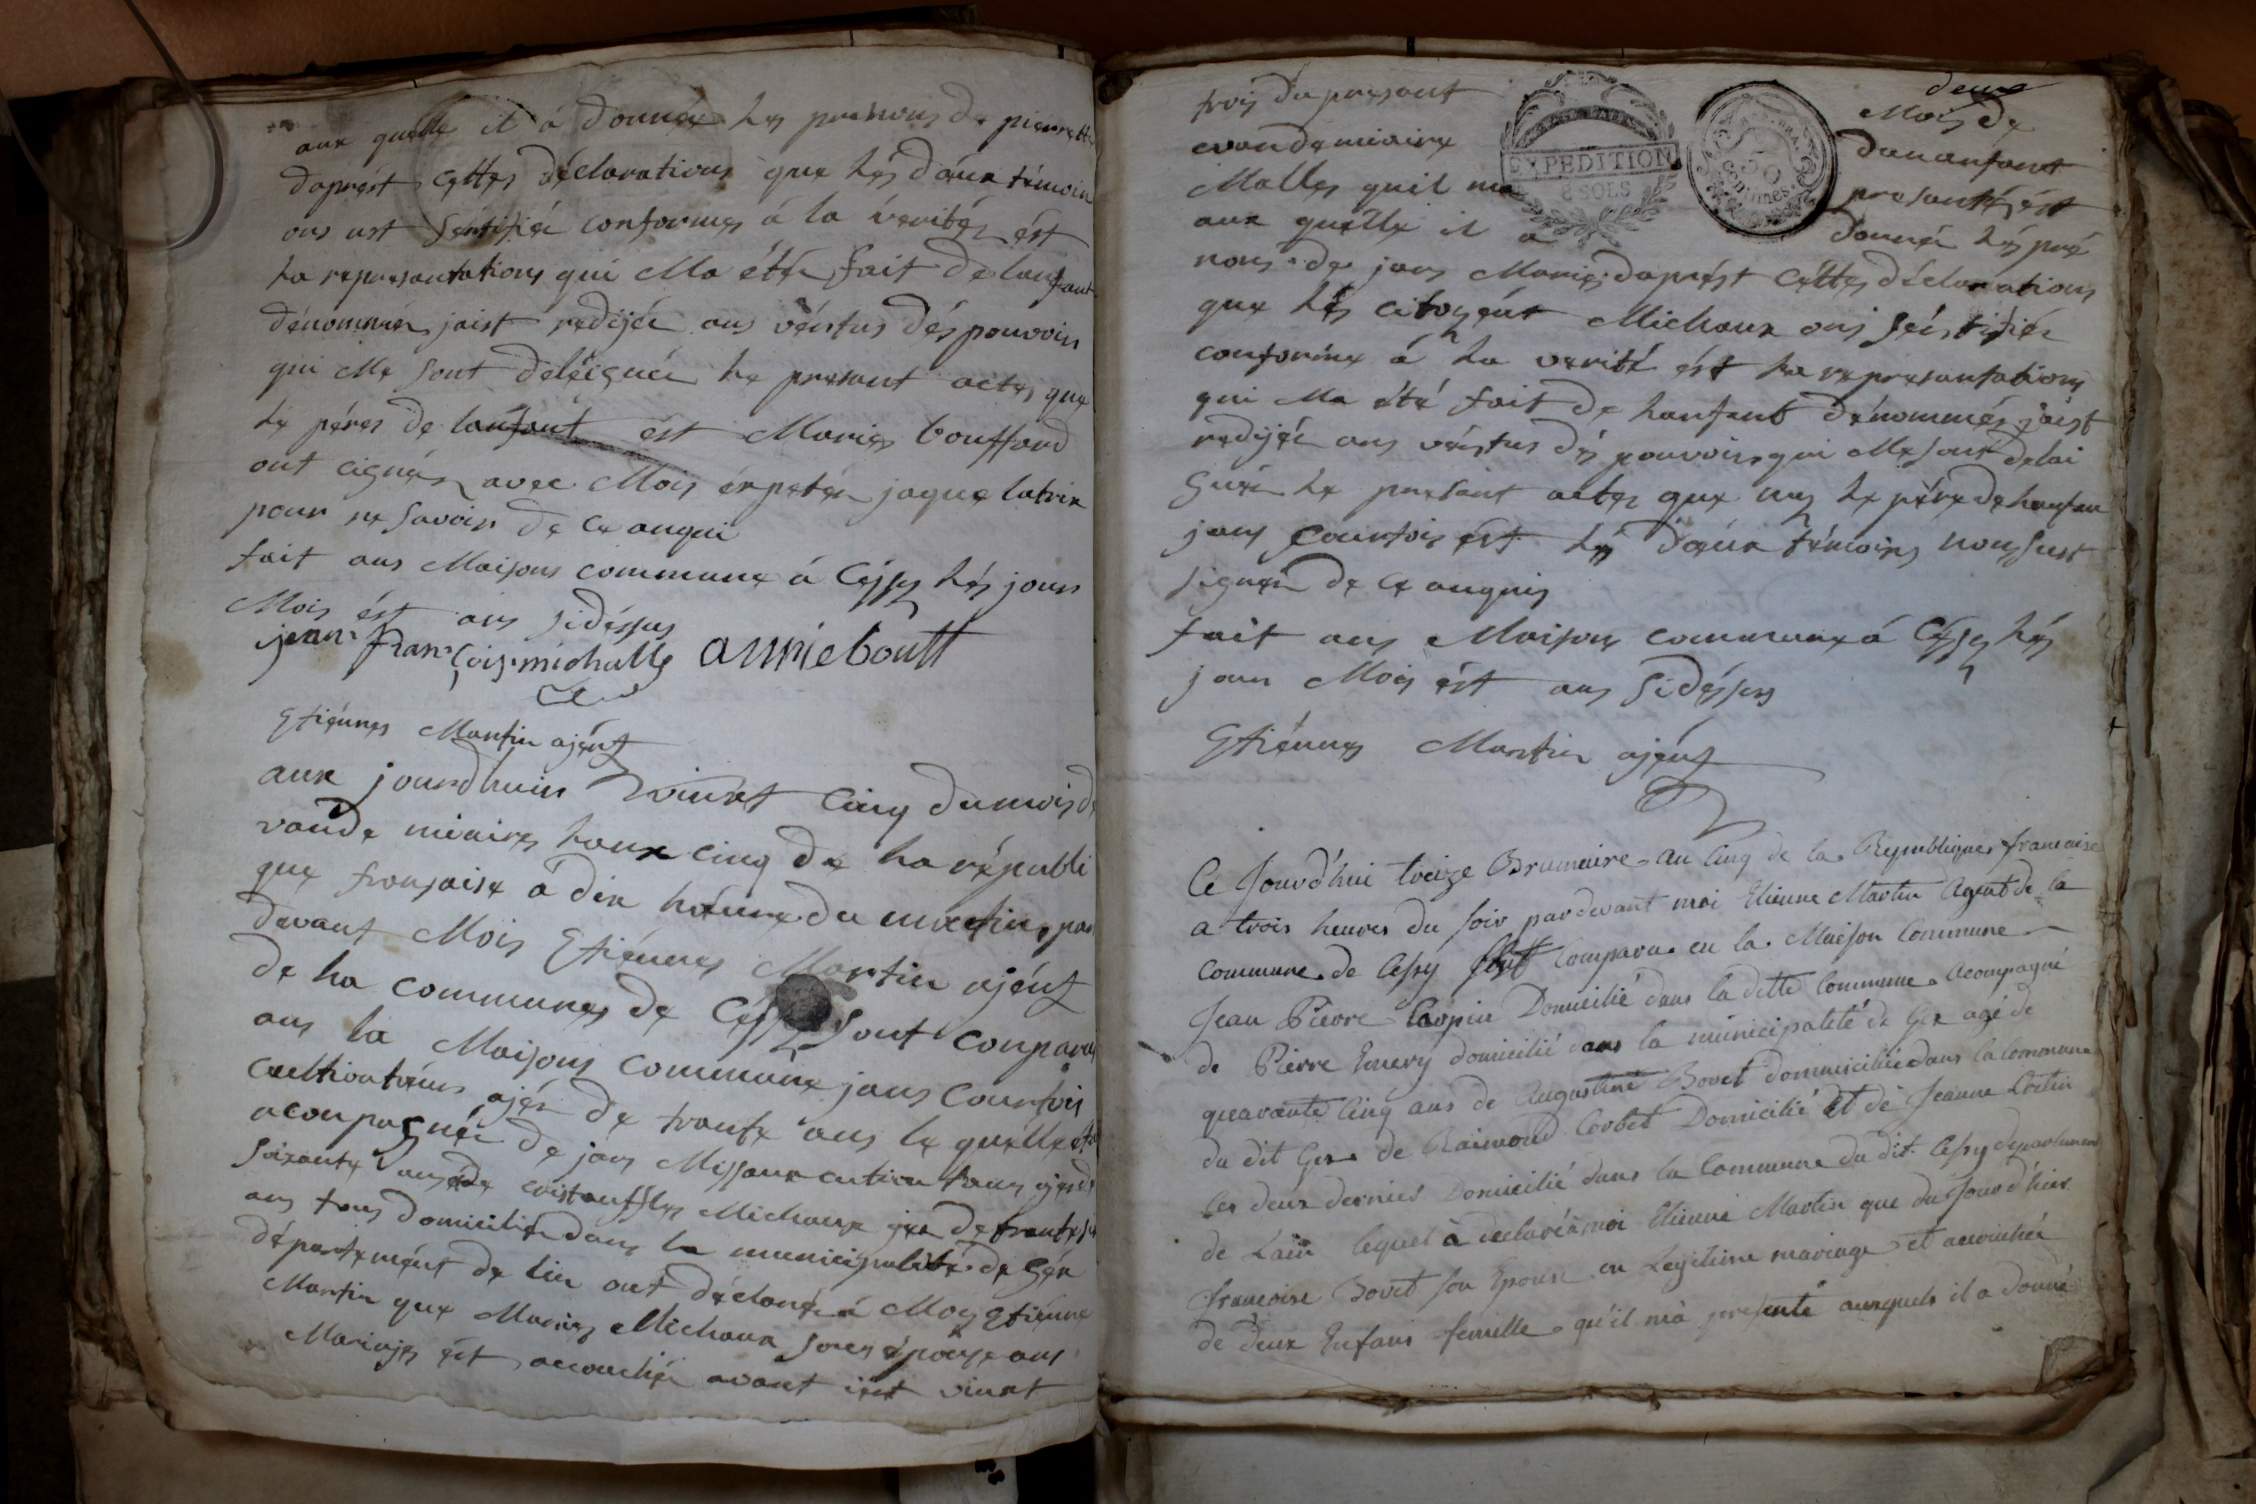 aux quelle il à donnéz les prenons de pierrette
daprést cettes déclarations que lés dœux témoin
ons ust sértifiéz conformes á la véritéz ést
la represantations qui Ma étté fait de lanfant
dénommés jaist redijéz ans véirtus dés pouvoir
qui Me sont deléiguéz le presant actes que
le péres de lanfant ést Maries bouffard
ont cignéz avec Mois éxpetéz jaque latrix
pour ne savoir de ce anqui
fait ans Maisons commune á Céssy lés jour
Mois ést ans sidéssus
jean françois michalle annieboutt
Etiénnes Martin ajént
aux jourdhuis vinxt cinq du mois de
vande miaires lanx cinq de la républi
que fransaise á dix héure du matin par
devant Mois Etiénnes Martin ajént
de la communes de Céssy sont conparus
ans la Maisons commune jans Courtois
cultivatéurs ajéz de trante ans le quélle
aconpagnéz de jans Missaux ajéz de
soixante ans de cristouffles Michaux
ans tous domiciliéz dans la municipalité de Géx
départemént de lin ont déclaréz á Mois etiénne
Martin que Maries Michaux sons épouse ans
Mariajes ést accouchéz avant vinxt
trois du presant
vandemiaire
Malles quil ma
aux quélle il a
deux
Mois de
dun anfant
presantéz ést
donnéz lés pré
nons de jans Maries daprést céttes déclarations
que lés citoyént Michaux ons séirtifiéz
conforme á la verité ést la represantations
qui Ma été fait de lanfant dénommés jaist
redijéz ans véirtus dés pouvoirs qui Me sont delai
guéz le presant actes que le pére de lanfan
jans Courtois ést lés dœux témoins nons sust
signéz de ce anquis
fait ans Maisons commune á Céssy lés
jour Mois ést ans sidéssus
Etiénnes Martin ajént
EXPEDITION
8 SOLS
50
centimes
Ce Jourd'hui treize Brumaire an Cinq de la Republique francaise
a trois heures du soir pardevant moi Etienne Martin Agent de la
commune de Cessy Comparu en la Maison Commune
Jean Pierre Domicilié dans la ditte Commune acompagné
de Pierre Emery domicilié dans la municipalité de Gex agé de
quarante Cinq ans de Augustine Bovet dommiciliée dans la Commune
du dit Gex de Raimond Corbet Domicilié et de Jeanne
les deux derniers Domicilié dans la Commune du dit Cessy departement
de Lain lequel à declaré à moi Etienne Martin que du jour d'hier
francoise Bovet son Epouse en Legitime mariage et accouchée
de deux Enfans femelle qu'il m'à presenté auxquels il a donné